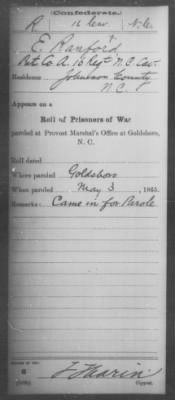 Confederate.
R 16 Cav. N.C.
E. Ranford
Pvt Co A. 16 Reg't N.C. Cav.
Residence Johnston County
N.C.
Appears on a
Roll of Prisoners of War
paroled at Provost Marshal's Office at Goldsboro,
N. C.
Roll dated
Where paroled Goldsboro
When paroled May 3, 1865.
Remarks: Came in for Parole
Copyist.